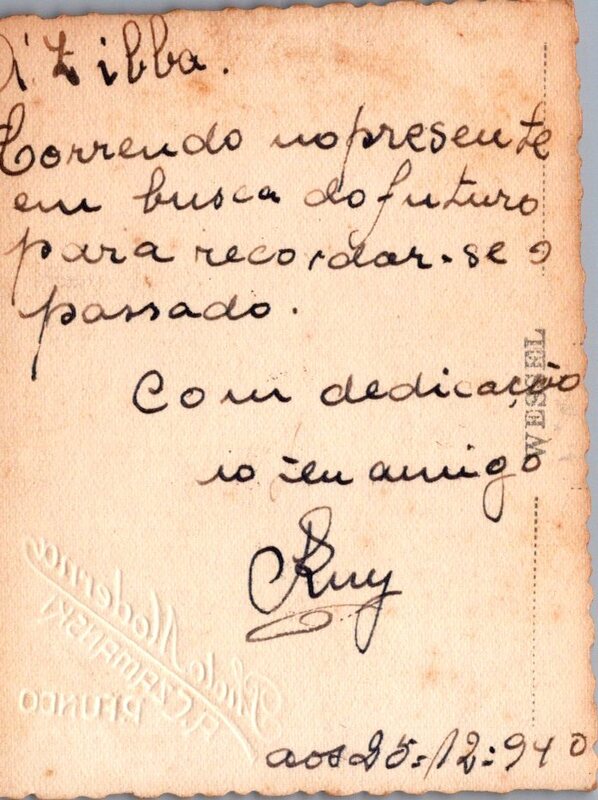 Á Zibba.
Correndo no presente
em busca do futuro
para recordar-se o
passado.
Com dedicação
io seu amigo
Ruy
aos 25-12-940
WESSEL
Photo Moderna
A. CZAMANSKI
P. FUNDO